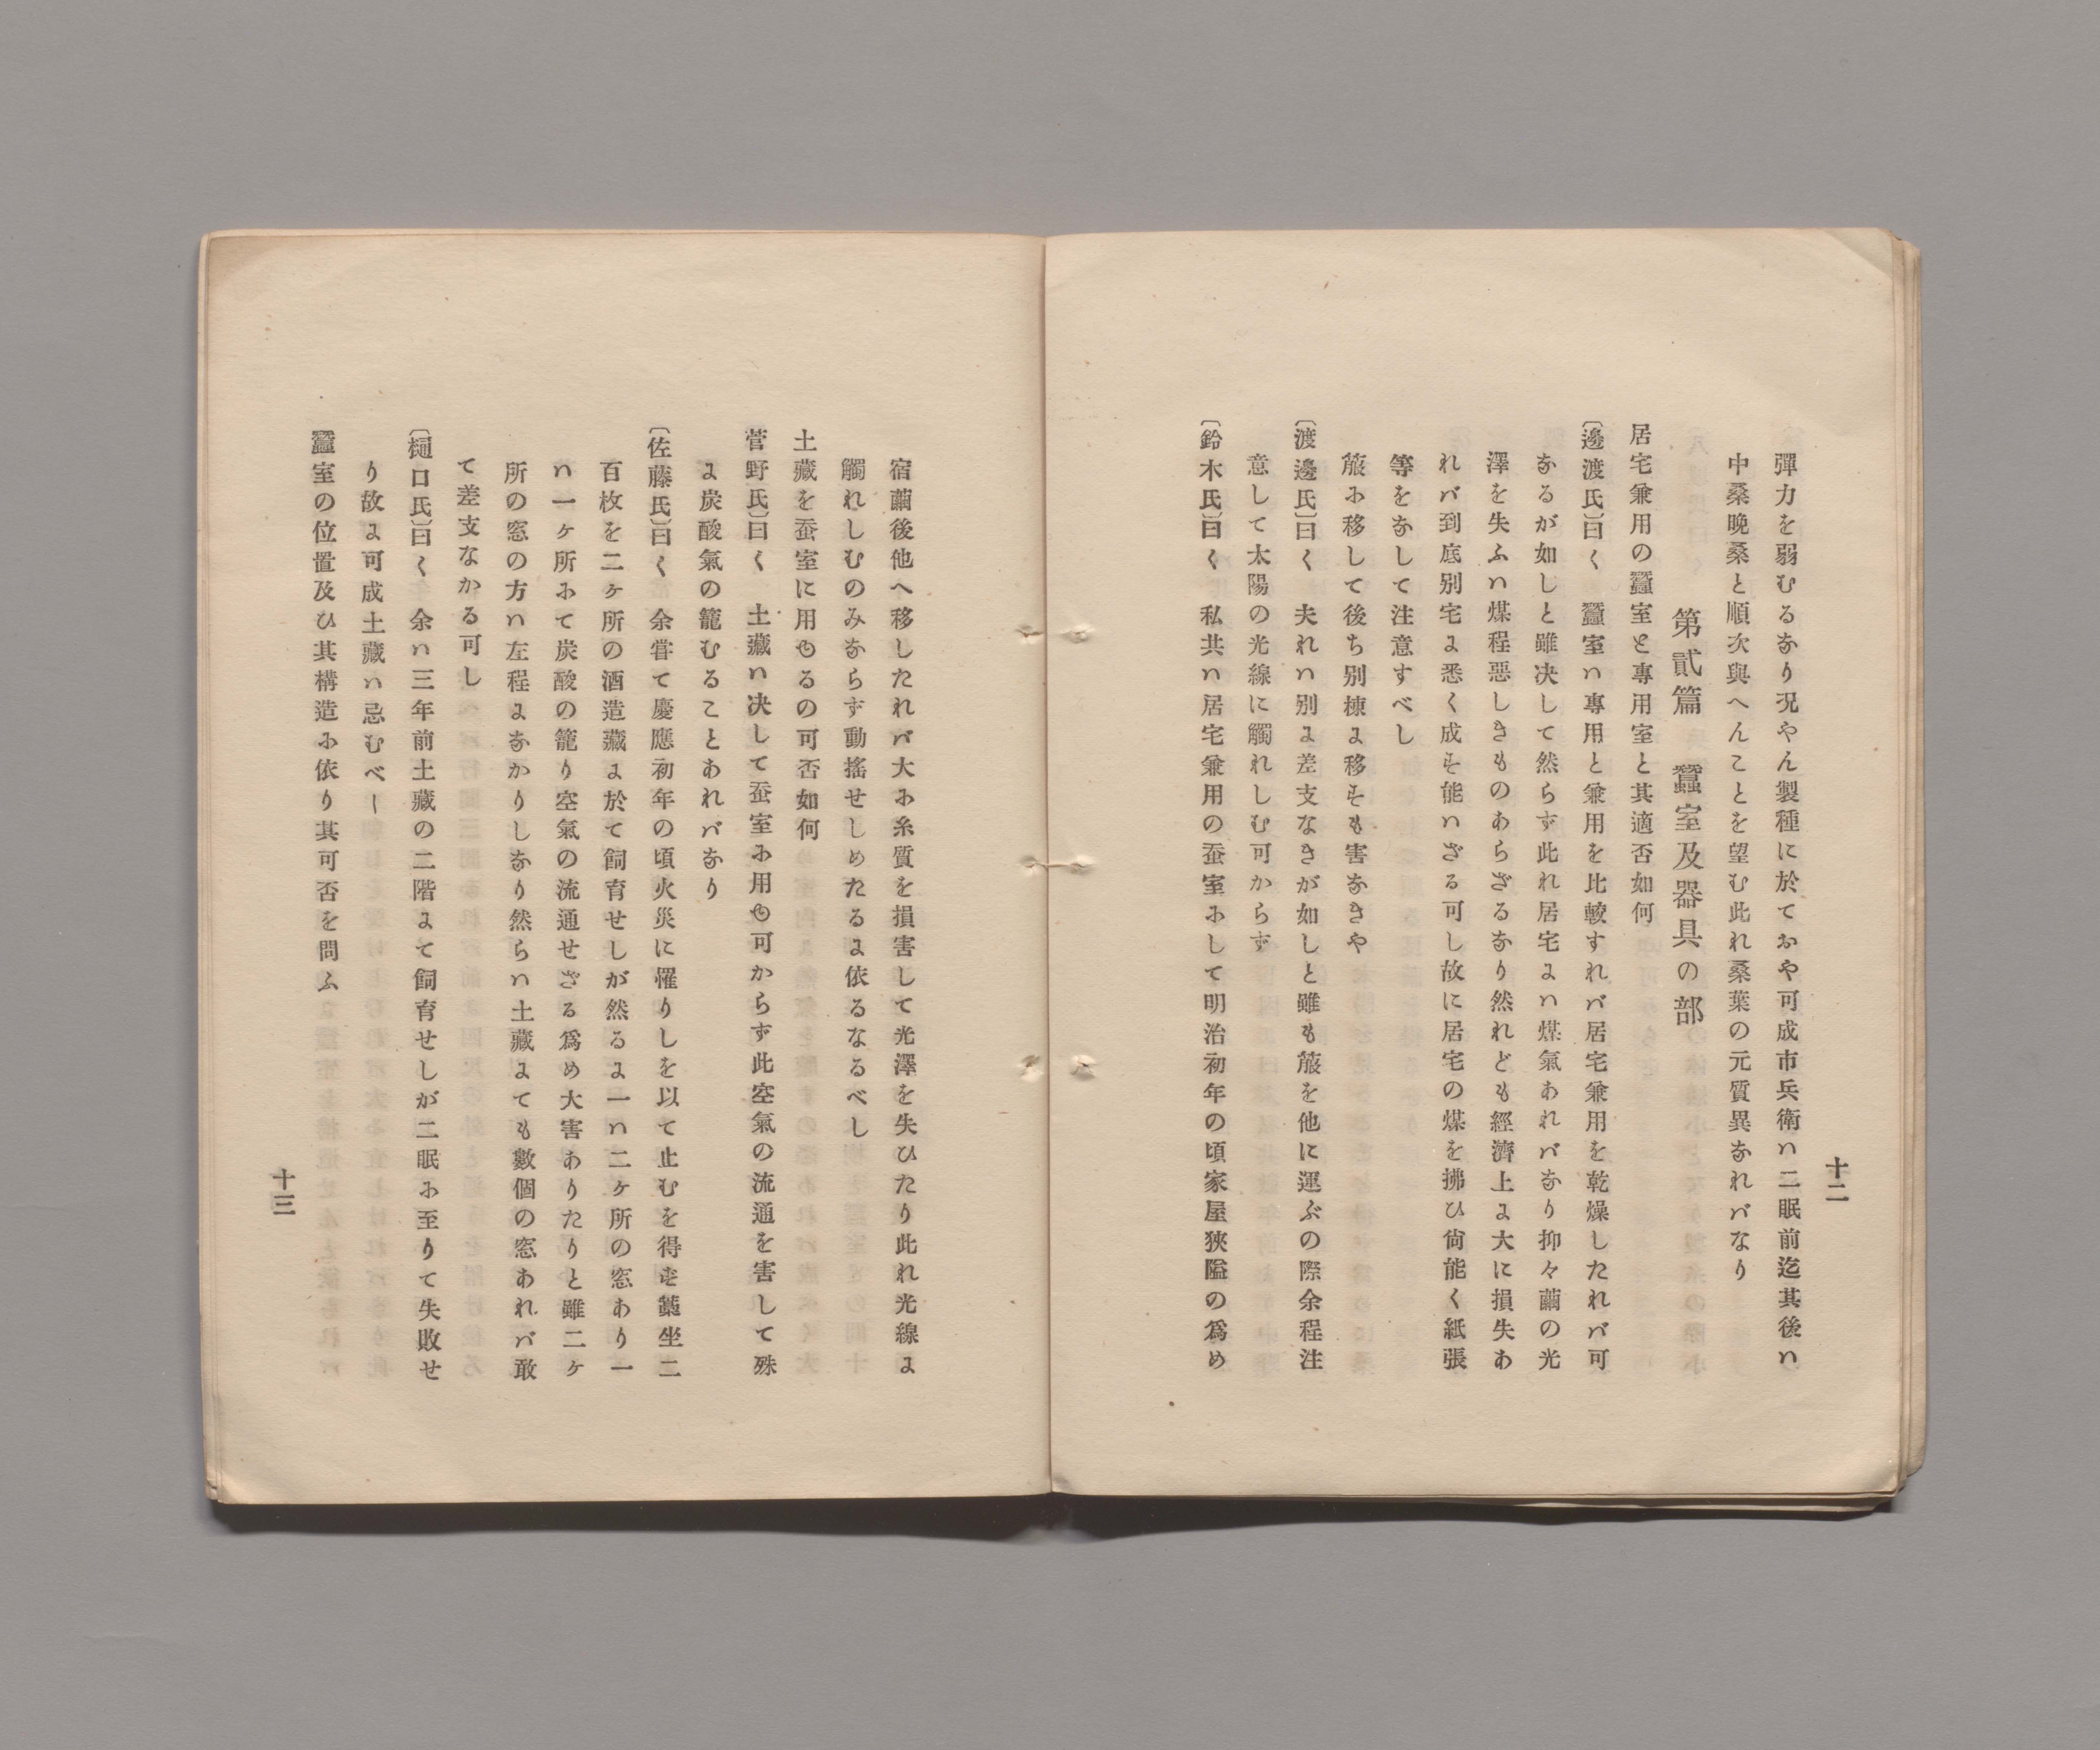 十二
彈力を弱むるなり况やん製種に於ておや可成市兵衛ハ二眠前迄其後ハ
中桑晩桑と順次與へんことを望む此れ桑葉の元質異なれバなり
第貳篇　蠶室及器具の部
居宅兼用の蠶室と專用室と其適否如何
〔邊渡氏〕曰く　蠶室ハ專用と兼用を比較すれバ居宅兼用を乾燥したれバ可
なるが如しと雖决して然らず此れ居宅にハ煤氣あれバなり抑々繭の光
澤を失ふハ煤程惡しきものあらざるなり然れども經濟上に大に損失あ
れバ到底別宅に悉く成す能ハざる可し故に居宅の煤を拂ひ尙能く紙張
等をなして注意すべし
簇に移して後ち別棟に移すも害なきや
〔渡邊氏〕曰く　夫れハ別に差支なきが如しと雖も簇を他に運ぶの際余程注
意して太陽の光線に觸れしむ可からず
〔鈴木氏〕曰く　私共ハ居宅兼用の蚕室にして明治初年の頃家屋狹隘の爲め
宿繭後他へ移したれバ大に糸質を損害して光澤を失ひたり此れ光線に
觸れしむのみならず動搖せしめたるに依るなるべし
土藏を蚕室に用ゆるの可否如何
菅野氏〕曰く　土藏ハ决して蚕室に用ゆ可からず此空氣の流通を害して殊
に炭酸氣の籠むることあれバなり
〔佐藤氏〕曰く　余甞て慶應初年の頃火災に罹りしを以て止むを得ず蠶坐二
百枚を二ヶ所の酒造藏に於て飼育せしが然るに一ハ二ヶ所の窓あり一
ハ一ヶ所にて炭酸の籠り空氣の流通せざる爲め大害ありたりと雖二ヶ
所の窓の方ハ左程になかりしなり然らハ土藏にても數個の窓あれバ敢
て差支なかる可し
〔樋口氏〕曰く　余ハ三年前土藏の二階にて飼育せしが二眠に至りて失敗せ
り故に可成土藏ハ忌むべー
蠶室の位置及ひ其構造に依り其可否を問ふ
十三